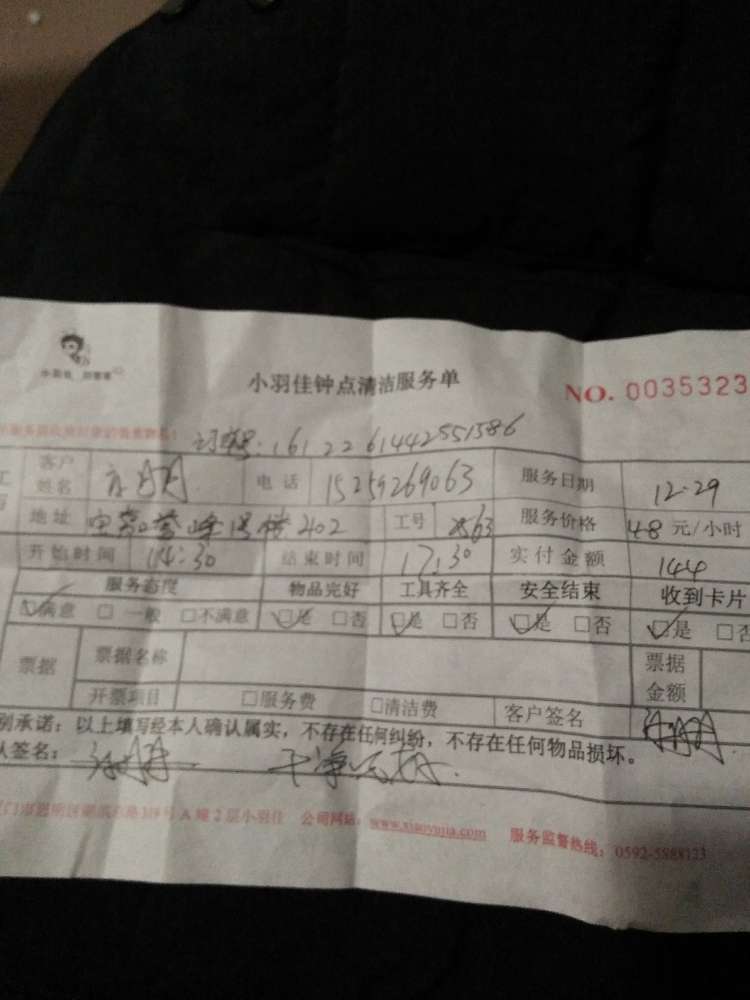 小羽佳钟点清洁服务单
NO. 0035323
订单号:1612261442551586
客户姓名 电话 15259269063 服务日期 12.29
地址 402 工号 服务价格 48 元/小时
开始时间 14:30 结束时间 17:30 实付金额 144
服务态度 物品完好 工具齐全 安全结束 收到卡片
☑满意 □一般 □不满意 ☑是 □否 ☑是 □否 ☑是 □否 ☑是 □否
票据 票据名称 票据金额
开票项目 □服务费 □清洁费 客户签名
别承诺:以上填写经本人确认属实,不存在任何纠纷,不存在任何物品损坏。
签名: 干净
A幢2层小羽佳 公司网站:www.xiaoyujia.com 服务监督热线:0592-5888133